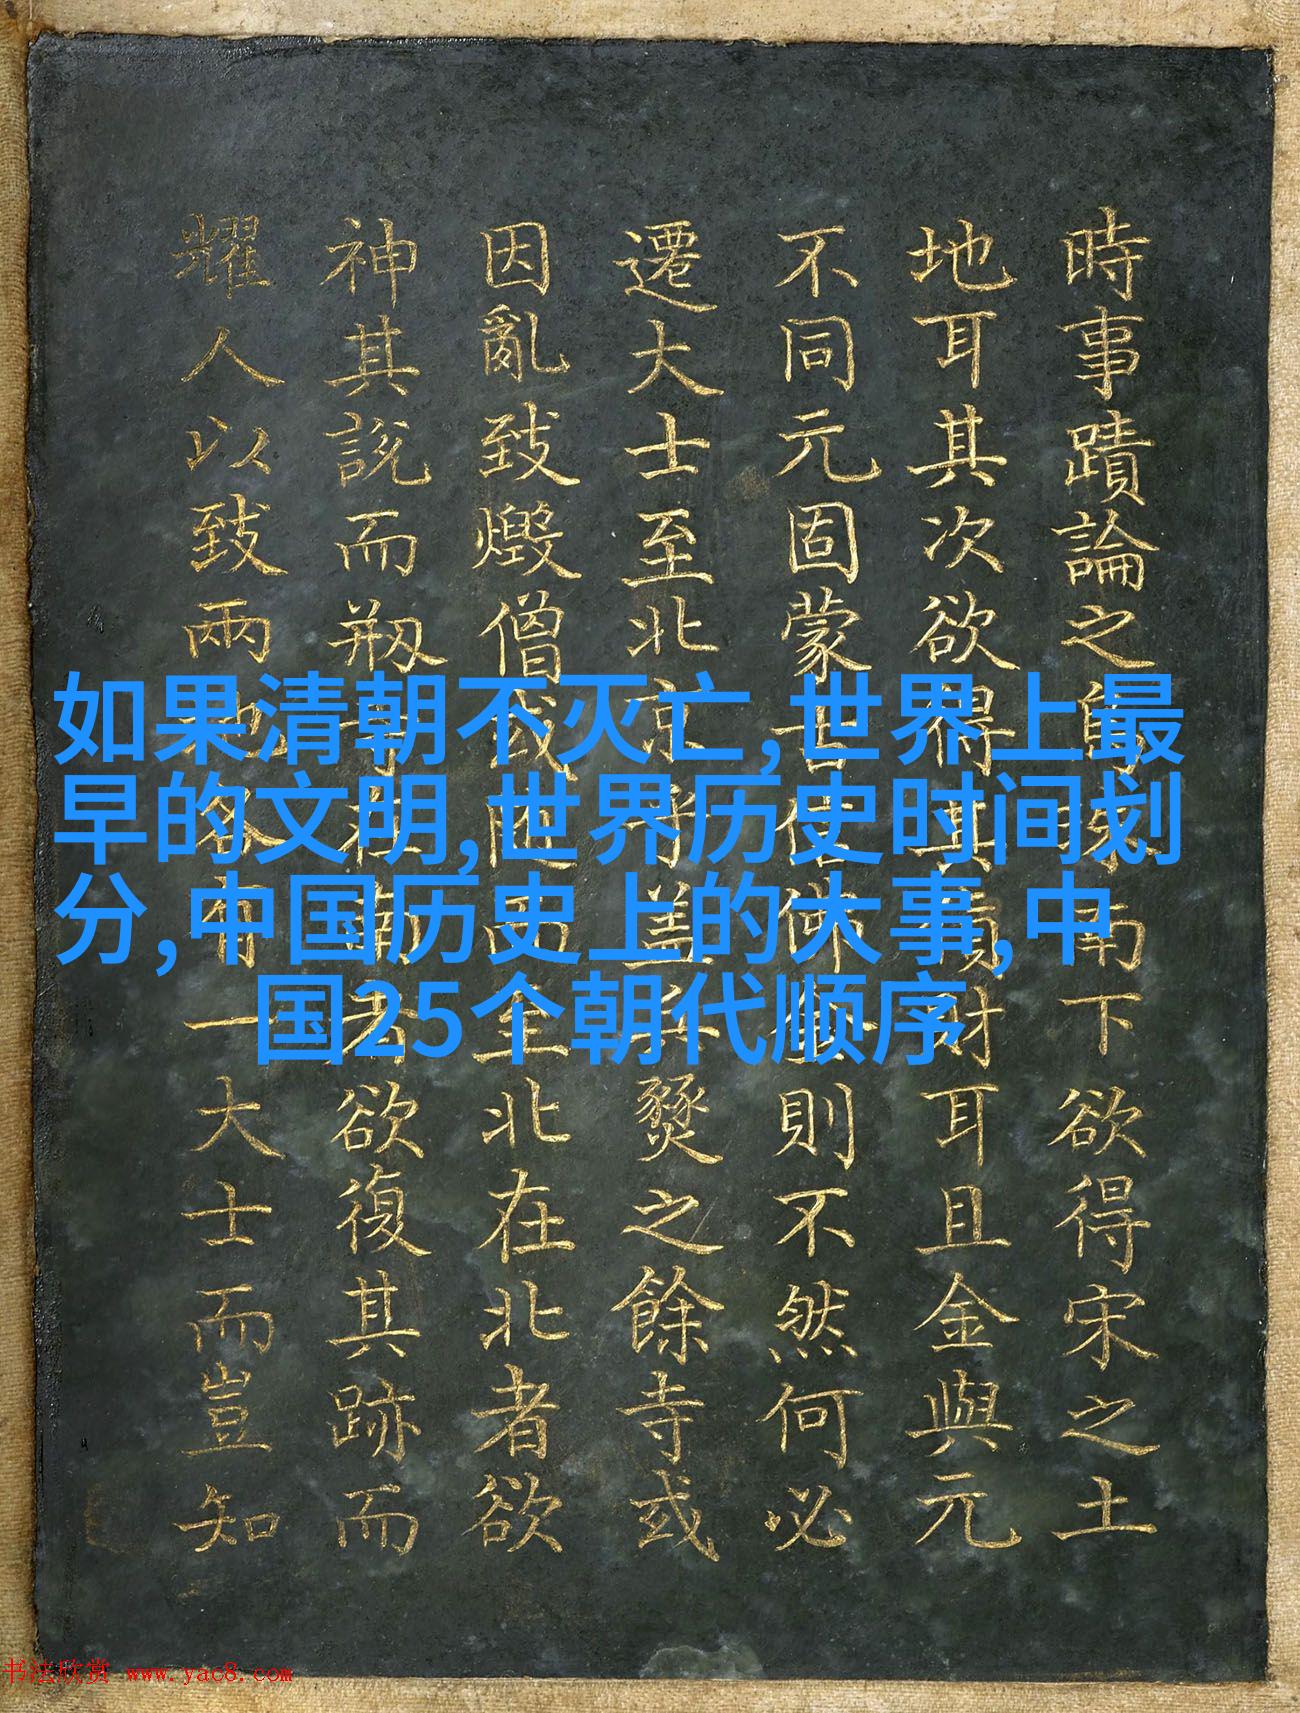 時事蹟論之南下欲得宋之土
地耳其次欲得其財耳且金與元
不同元固蒙古信佛則不然何必
遷大士至北京乎蓋兵燹之餘寺或
因亂致燬僧或隨而至北在北者欲
神其說而剏在南者欲復其跡而
耀人以致兩地各有一大士而豈知
如果清朝不灭亡,世界上最
早的文明,世界历史时间划
分,中国历史上的大事,中
国25个朝代顺序
书法欣赏 www.yac8.com